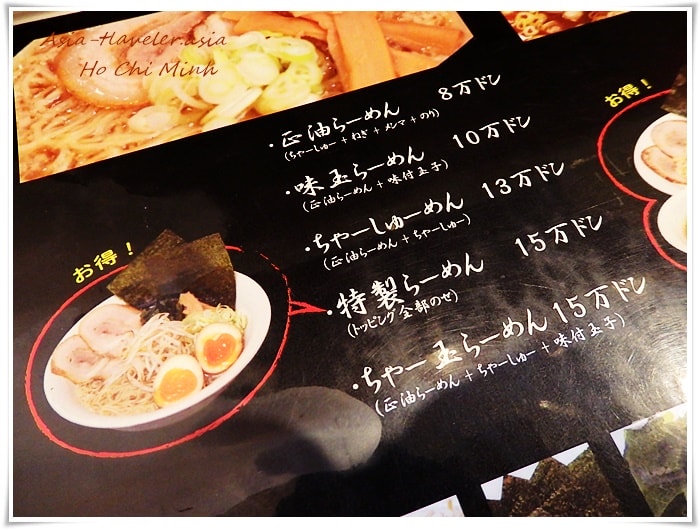 Asia-Traveler.asia
Ho Chi Minh
・正油らーめん 8万ドン
(ちゃーしゅー + ねぎ + メンマ + のり)
・味玉らーめん 10万ドン
(正油らーめん + 味付玉子)
・ちゃーしゅーめん 13万ドン
(正油らーめん + ちゃーしゅー)
お得！
・特製らーめん 15万ドン
(トッピング全部のせ)
・ちゃー玉らーめん 15万ドン
(正油らーめん + ちゃーしゅー + 味付玉子)
お得！